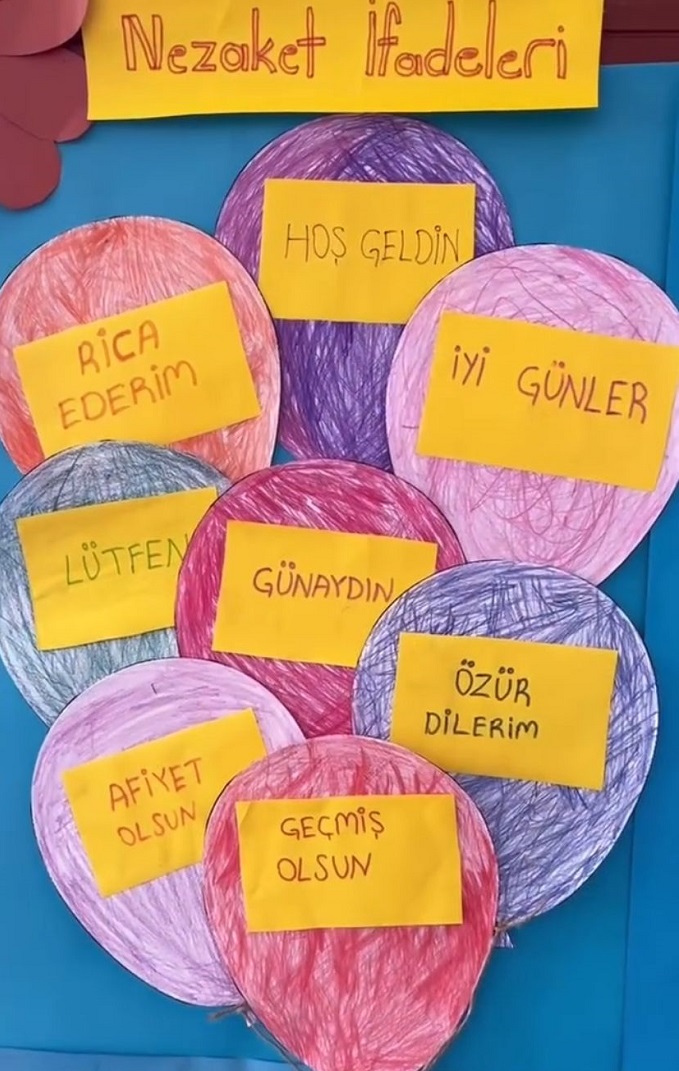 Nezaket İfadeleri
HOŞ GELDİN
RİCA
EDERİM
İYİ GÜNLER
LÜTFEN
GÜNAYDIN
ÖZÜR
DİLERİM
AFİYET
OLSUN
GEÇMİŞ
OLSUN